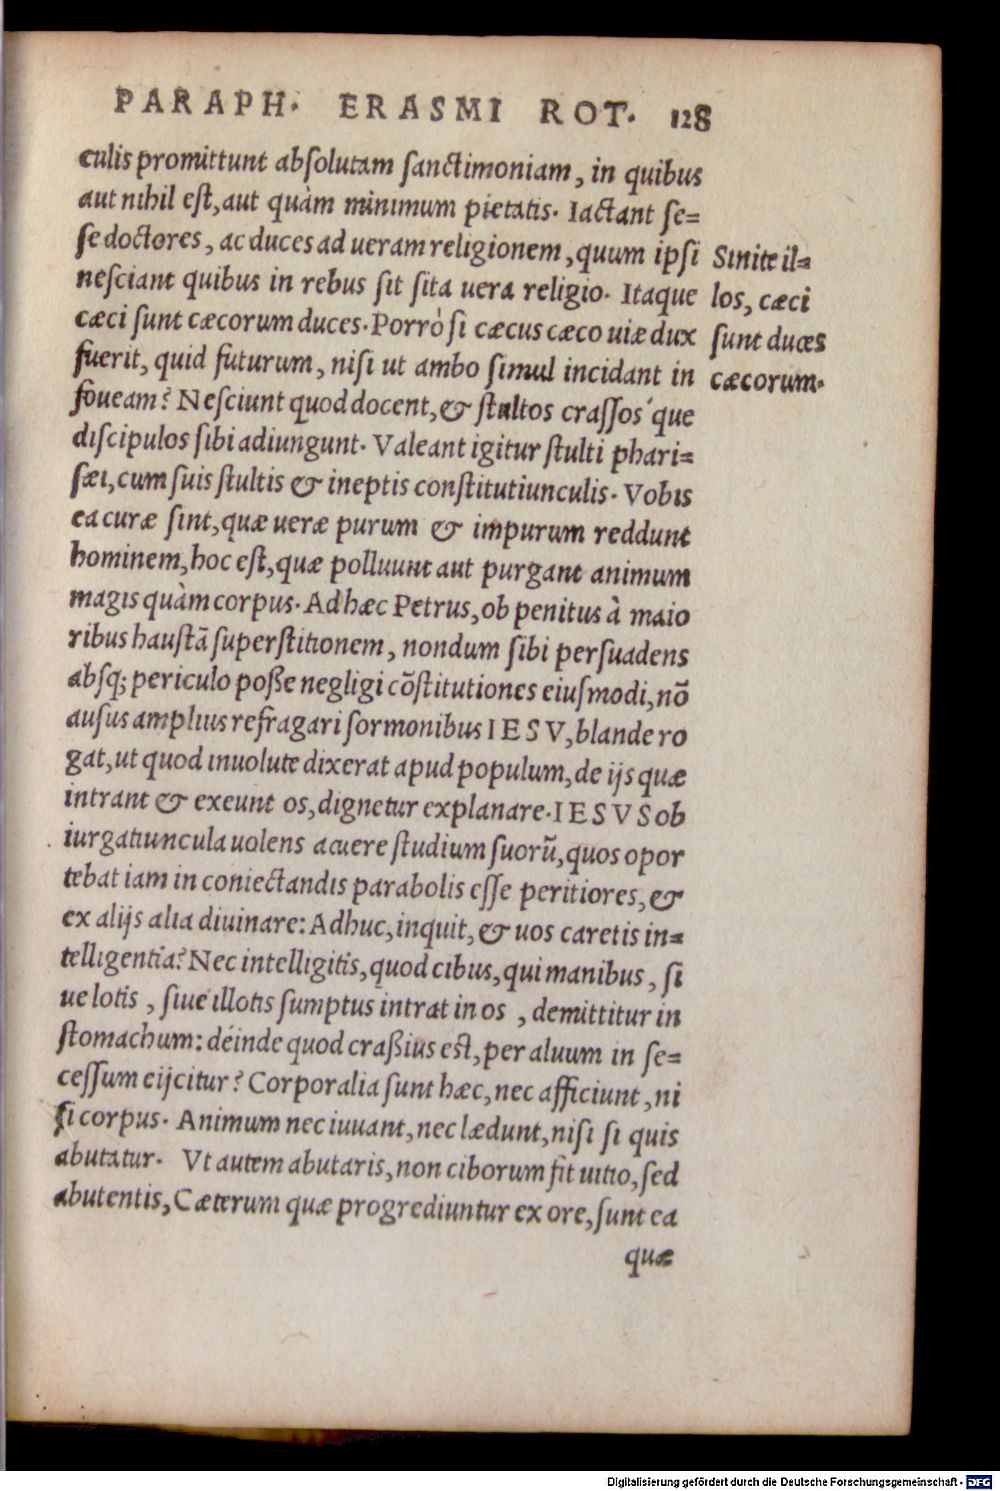 PARAPH. ERASMI ROT. 128
culis promittunt absolutam sanctimoniam, in quibus
aut nihil est, aut quàm minimum pietatis. Iactant se=
se doctores, ac duces ad ueram religionem, quum ipsi
nesciant quibus in rebus sit sita uera religio. Itaque
cæci sunt cæcorum duces. Porrò si cæcus cæco uiæ dux
fuerit, quid futurum, nisi ut ambo simul incidant in
foueam? Nesciunt quod docent, & stultos crassos´que
discipulos sibi adiungunt. Valeant igitur stulti phari=
sæi, cum suis stultis & ineptis constitutiunculis. Vobis
ea curæ sint, quæ uere purum & impurum reddunt
hominem, hoc est, quæ polluunt aut purgant animum
magis quàm corpus. Ad hæc Petrus, ob penitus à maio
ribus haustã superstitionem, nondum sibi persuadens
absq; periculo poße negligi cõstitutiones eiusmodi, nõ
ausus amplius refragari sormonibus IESV, blande ro
gat, ut quod inuolute dixerat apud populum, de ijs quæ
intrant & exeunt os, dignetur explanare. IESVS ob
iurgatiuncula uolens acuere studium suorũ, quos opor
tebat iam in coniectandis parabolis esse peritiores, &
ex alijs alia diuinare: Adhuc, inquit, & uos caretis in=
telligentia? Nec intelligitis, quod cibus, qui manibus, si
ue lotis, siue illotis sumptus intrat in os, demittitur in
stomachum: deinde quod craßius est, per aluum in se=
cessum eijcitur? Corporalia sunt hæc, nec afficiunt, ni
si corpus. Animum nec iuuant, nec lædunt, nisi si quis
abutatur. Vt autem abutaris, non ciborum fit uitio, sed
abutentis, Cæterum quæ progrediuntur ex ore, sunt ea
quæ
Sinite il=
los, cæci
sunt duces
cæcorum.
Digitalisierung gefördert durch die Deutsche Forschungsgemeinschaft - DFG